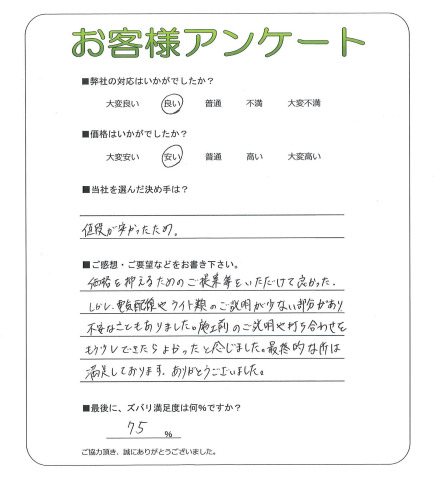 お客様アンケート
■弊社の対応はいかがでしたか？
大変良い 良い 普通 不満 大変不満
■価格はいかがでしたか？
大変安い 安い 普通 高い 大変高い
■当社を選んだ決め手は？
値段が安かったため。
■ご感想・ご要望などをお書き下さい。
価格を抑えるためのご提案等をいただけて良かった。
しかし、電気配線やライト類のご説明が少ない部分があり
不安なこともありました。施工前のご説明や打ち合わせを
もう少しできたらよかったと感じました。最終的な所は
満足しております。ありがとうございました。
■最後に、ズバリ満足度は何%ですか？
75 %
ご協力頂き、誠にありがとうございました。